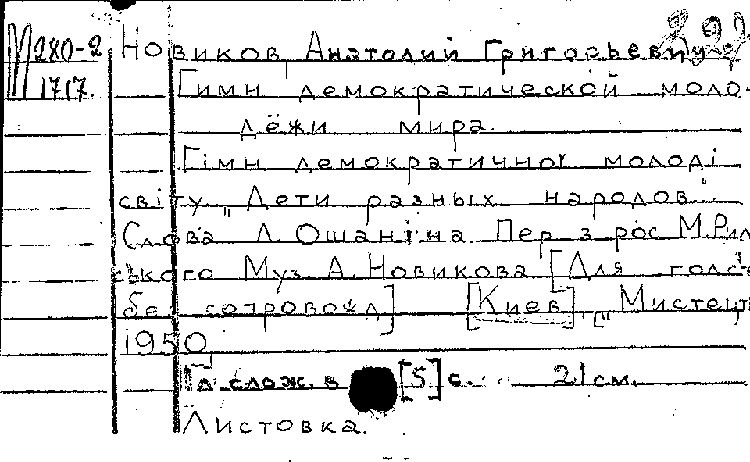 М280-2 Новиков Анатолий Григорьевич
1717. Гимн демократической моло-
дёжи мира.
Гімн демократичної молоді
світу „Дети разных народов"
Слова Л. Ошаніна. Пер. з рос. М. Рил
ського Муз. А. Новикова [Для голос
без сопровожд] [Киев], „Мистецт
1950
[5] с. 21 см.
Листовка.